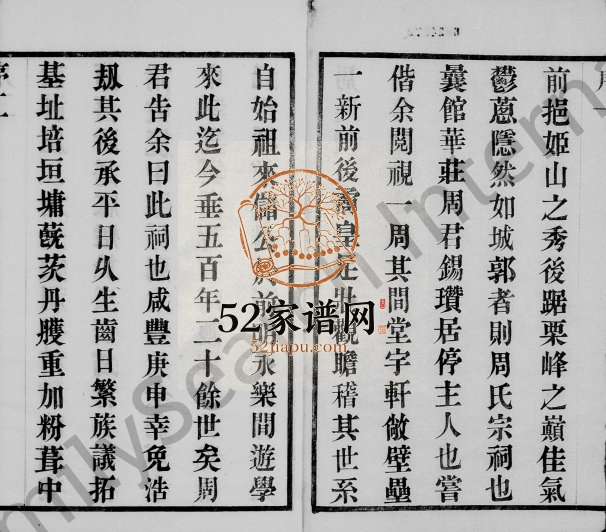 前挹姬山之秀後踞栗峰之巔佳氣
鬱蔥隱然如城郭者則周氏宗祠也
曩館華莊周君錫瓚居停主人也嘗
偕余閱視一周其間堂宇軒敞壁壘
一新前後 皇 壯觀瞻稽其世系
自始祖來儒公於前明永樂間遊學
來此迄今垂五百年二十餘世矣周
君告余曰此祠也咸豐庚申幸免浩
刼其後承平日久生齒日繁族議拓
基址培垣墉蓻茨丹雘重加粉葺中
序二
52家谱网
52jiapu.com